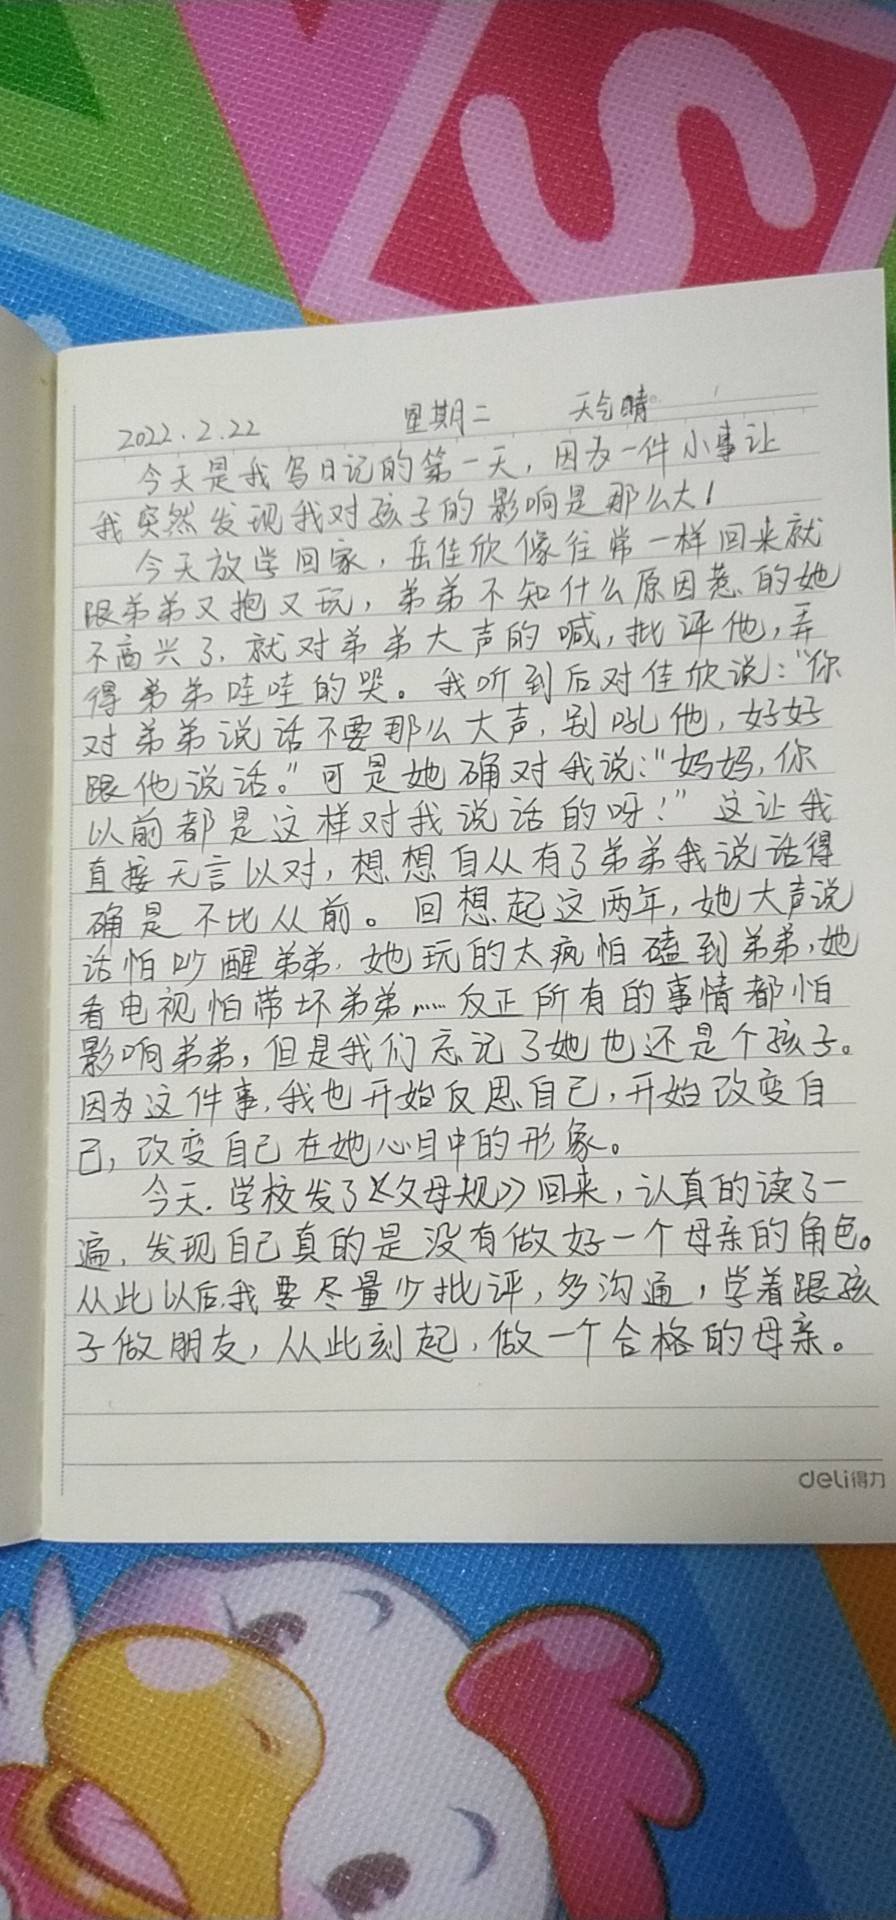 S
2022.2.22 星期二 天气晴
今天是我写日记的第一天，因为一件小事让
我突然发现我对孩子的影响是那么大！
今天放学回家，岳佳欣像往常一样回来就
跟弟弟又抱又玩，弟弟不知什么原因惹的她
不高兴了，就对弟弟大声的喊，批评他，弄
得弟弟哇哇的哭。我听到后对佳欣说：“你
对弟弟说话不要那么大声，别吼他，好好
跟他说话。”可是她确对我说：“妈妈，你
以前都是这样对我说话的呀！”这让我
直接无言以对，想想自从有了弟弟我说话得
确是不比从前。回想起这两年，她大声说
话怕吵醒弟弟，她玩的太疯怕磕到弟弟，她
看电视怕带坏弟弟……反正所有的事情都怕
影响弟弟，但是我们忘记了她也还是个孩子。
因为这件事，我也开始反思自己，开始改变自
己，改变自己在她心目中的形象。
今天，学校发了《父母规》回来，认真的读了一
遍，发现自己真的是没有做好一个母亲的角色。
从此以后，我要尽量少批评，多沟通，学着跟孩
子做朋友，从此刻起，做一个合格的母亲。
deli得力